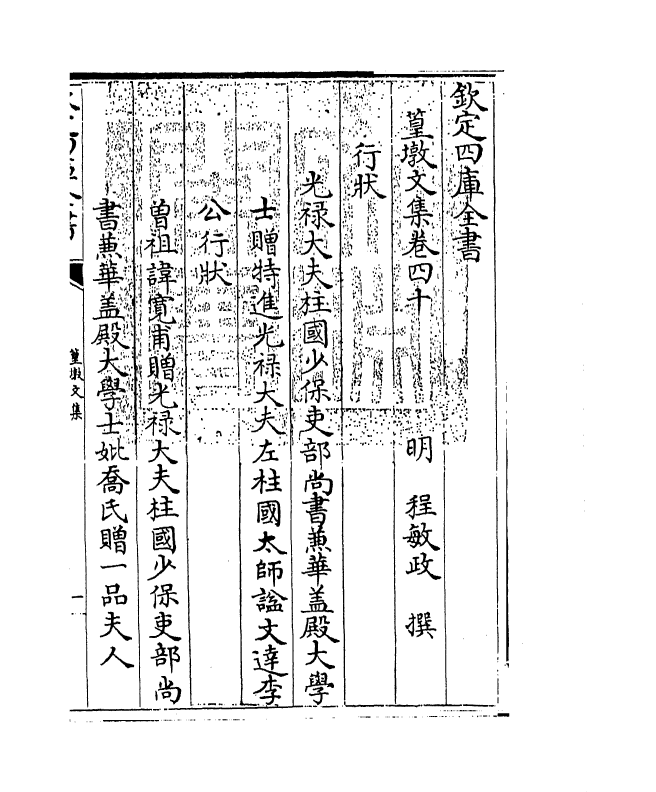 欽定四庫全書
篁墩文集卷四十
明　程敏政　撰
行狀
光禄大夫柱國少保吏部尚書兼華盖殿大學
士贈特進光禄大夫左柱國太師諡文達李
公行狀
曾祖諱寛甫贈光禄大夫柱國少保吏部尚
書兼華盖殿大學士妣喬氏贈一品夫人
篁墩文集
一